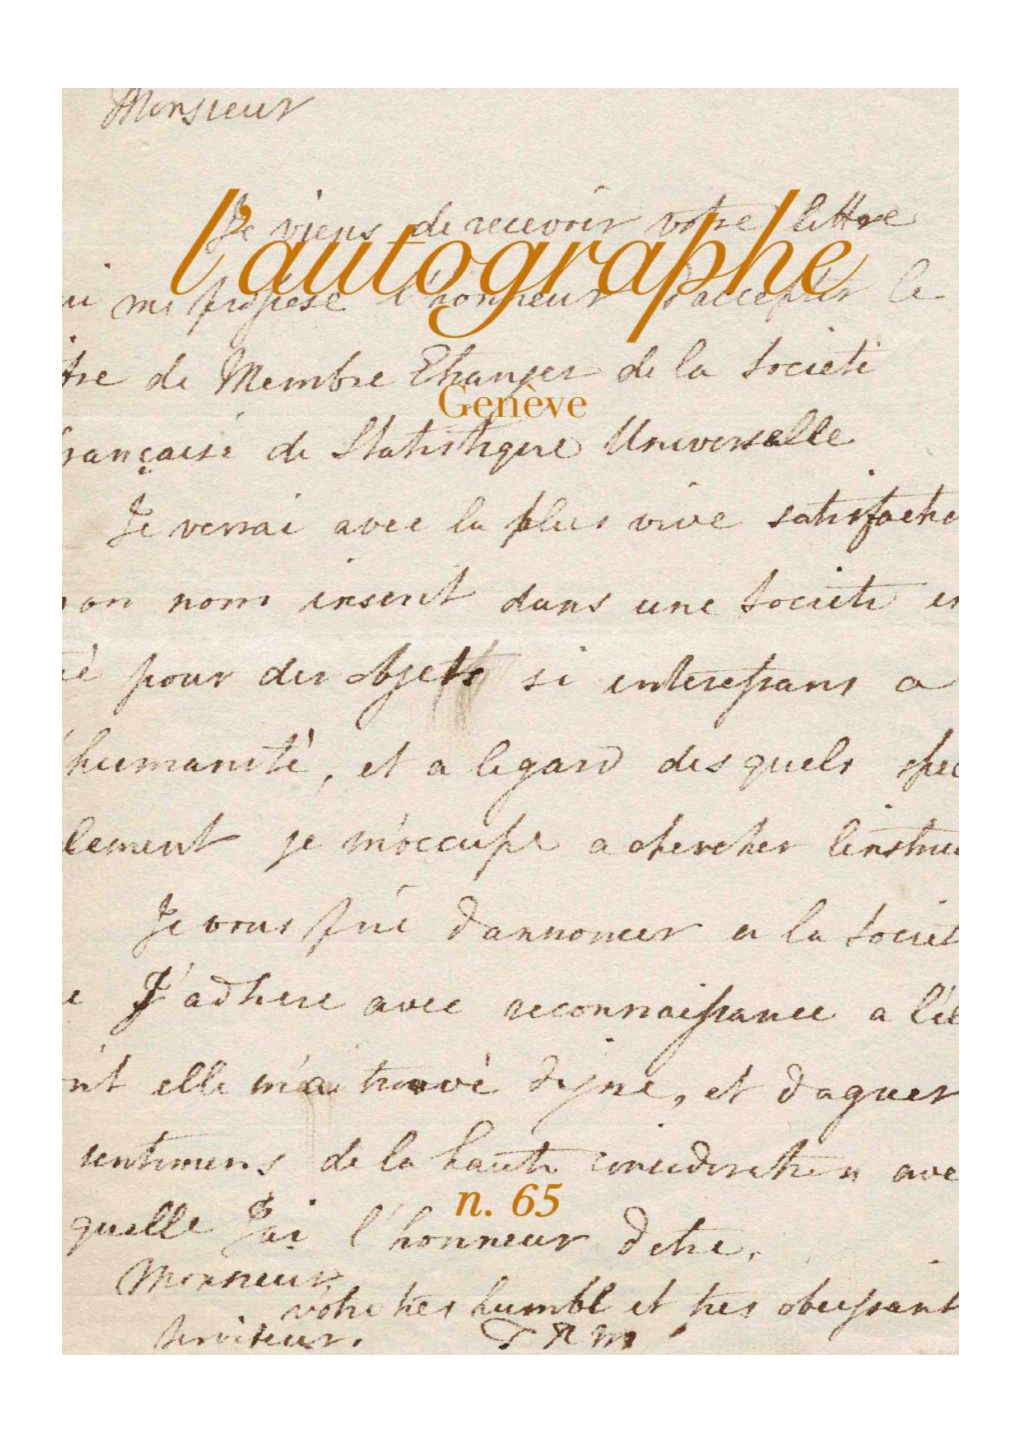 Monsieur
Je viens de recevoir votre lettre
l'autographe
ui me propose l'honneur d'accepter le
tre de Membre Etranger de la Societé
Genève
française de Statistique Universelle
Je verrai avec la plus vive satisfactio
mon nom inscrit dans une Societé
é pour des objets si interessans a
l'humanité, et a legard des quels spec
lement je m'occupe a chercher linstruc
Je vous prie dannoncer a la Societ
e J'adhere avec reconnaissance a l'
nt elle m'a trouvé digne, et daguer
sentimens de la haute consideration ave
n. 65
quelle J'ai l'honneur detre,
Monsieur,
votre tres humble et tres obeissant
Serviteur.